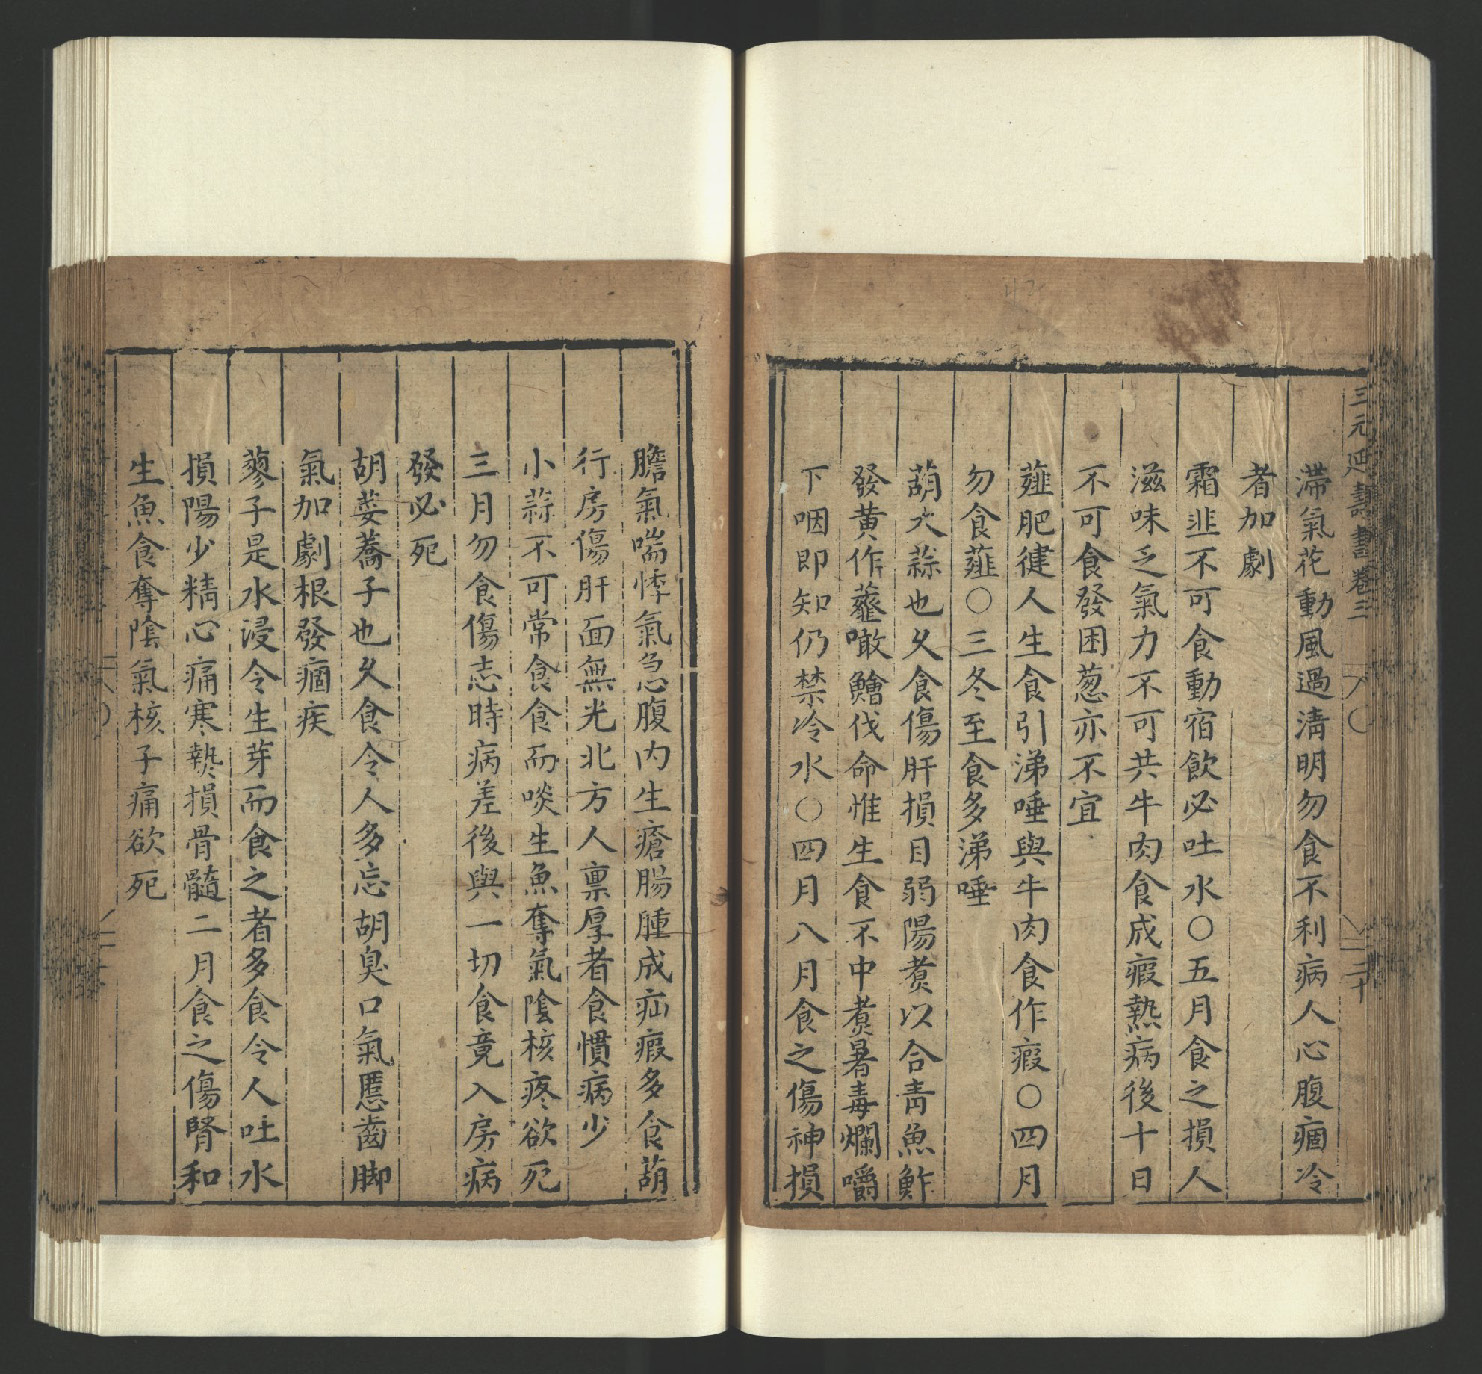 三元延壽書卷三
滯氣花動風過清明勿食不利病人心腹痼冷
者加劇
霜韭不可食動宿飲必吐水○五月食之損人
滋味乏氣力不可共牛肉食成瘕熱病後十日
不可食發困葱亦不宜
薤肥健人生食引涕唾與牛肉食作瘕○四月
勿食薤○三冬至食多涕唾
葫大蒜也久食傷肝損目弱陽煑以合青魚鮓
發黄作虀噉鱠伐命惟生食不中煑暑毒爛嚼
下咽即知仍禁冷水○四月八月食之傷神損
膽氣喘悸氣急腹内生瘡腸腫成疝瘕多食葫
行房傷肝面無光北方人禀厚者食慣病少
小蒜不可常食食而啖生魚奪氣陰核疼欲死
三月勿食傷志時病差後與一切食竟入房病
發必死
胡荽蕎子也久食令人多忘胡臭口氣𧏾齒脚
氣加劇根發痼疾
蓼子是水浸令生芽而食之者多食令人吐水
損陽少精心痛寒熱損骨髓二月食之傷腎和
生魚食奪陰氣核子痛欲死